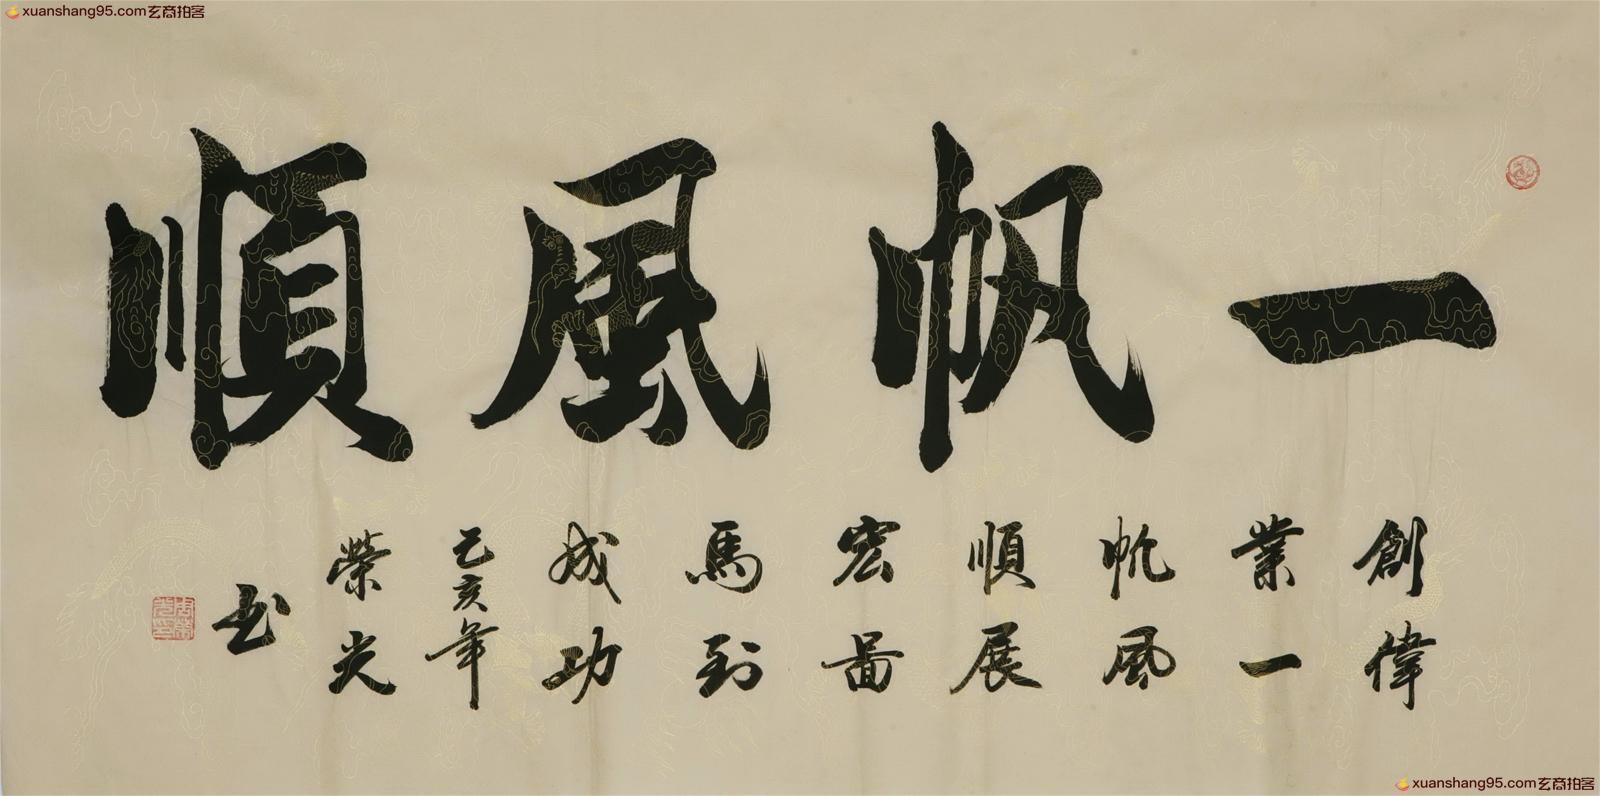 xuanshang95.com玄商拍客
一帆風順
創偉
業一
帆風
順展
宏圖
馬到
成功
己亥年
榮光
书
xuanshang95.com玄商拍客